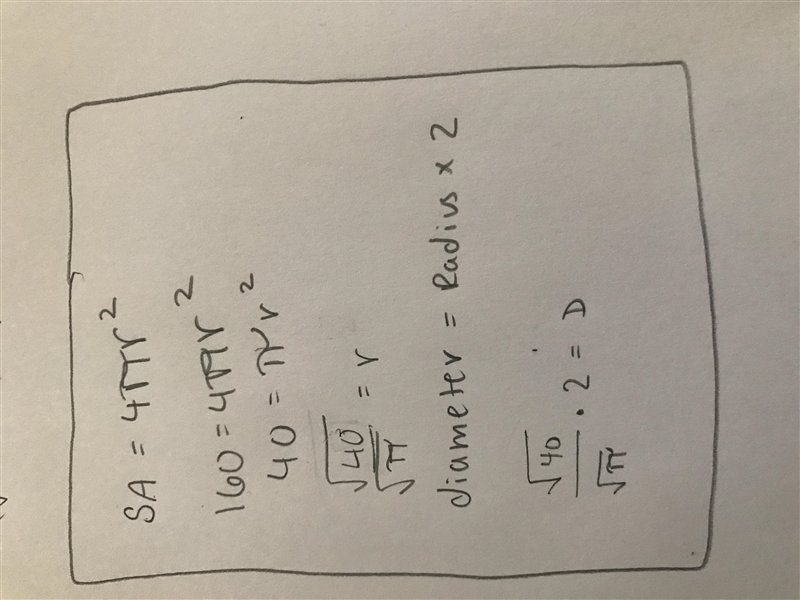 SA = 4πr²
160 = 4πr²
40 = πr²
√40/√π = r
diameter = Radius x 2
√40/√π · 2 = D